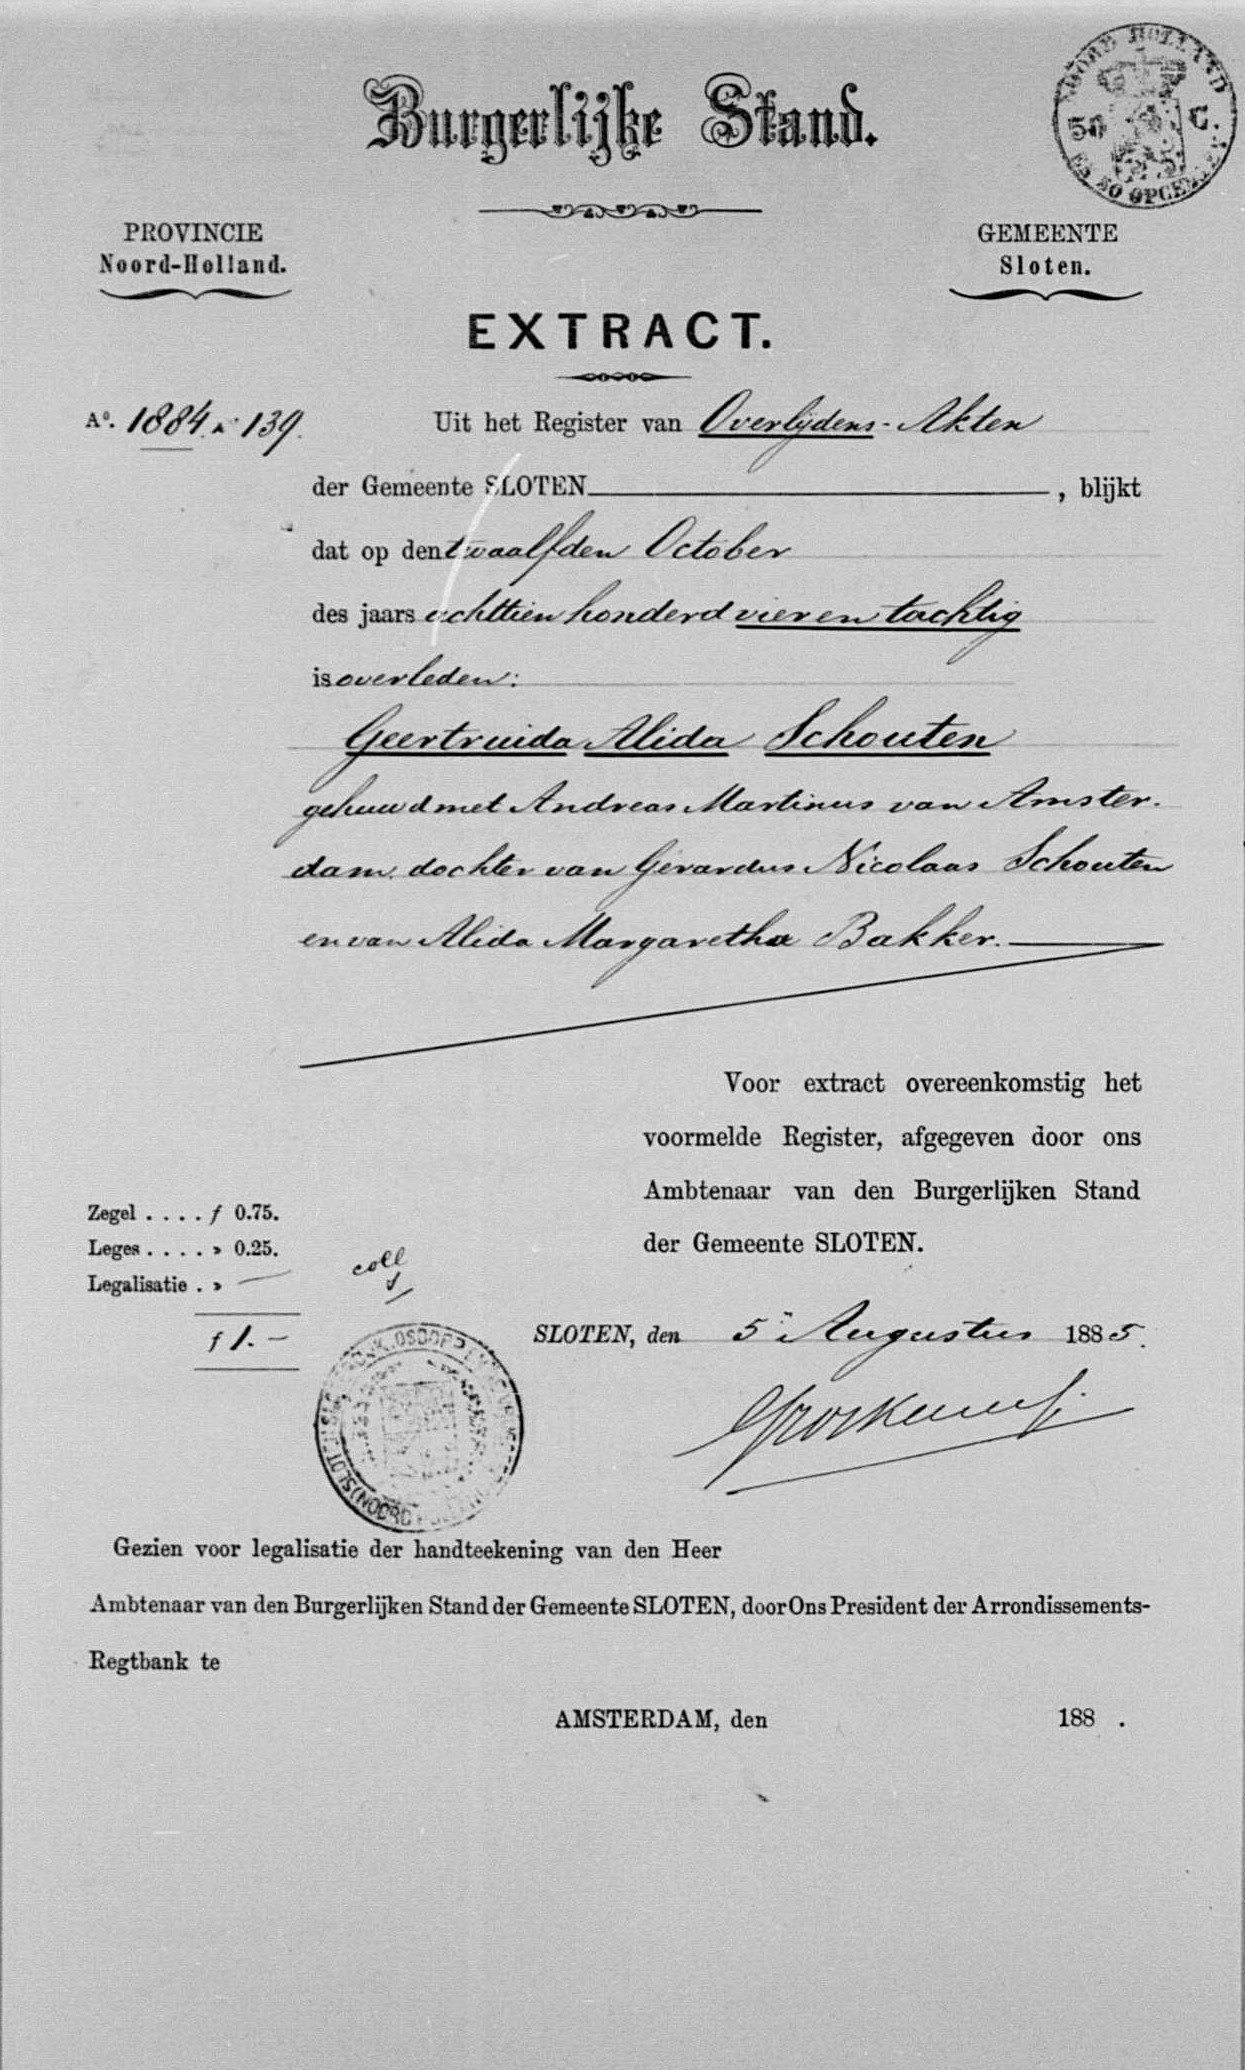 NOORD HOLLAND
50 C.
EN 50 OPCENTEN
Burgerlijke Stand.
PROVINCIE
Noord-Holland.
GEMEENTE
Sloten.
EXTRACT.
Aº. 1884 n. 139.
Uit het Register van Overlijdens-Akten
der Gemeente SLOTEN, blijkt
dat op den twaalfden October
des jaars achttien honderd vier en tachtig
is overleden:
Geertruida Alida Schouten
gehuwd met Andreas Martinus van Amster-
dam, dochter van Gerardus Nicolaas Schouten
en van Alida Margaretha Bakker.
Voor extract overeenkomstig het
voormelde Register, afgegeven door ons
Ambtenaar van den Burgerlijken Stand
der Gemeente SLOTEN.
Zegel .... f 0.75.
Leges .... » 0.25.
Legalisatie . » —
f 1.-
coll
SLOTEN, den 5 Augustus 1885.
Gezien voor legalisatie der handteekening van den Heer
Ambtenaar van den Burgerlijken Stand der Gemeente SLOTEN, door Ons President der Arrondissements-
Regtbank te
AMSTERDAM, den 188 .